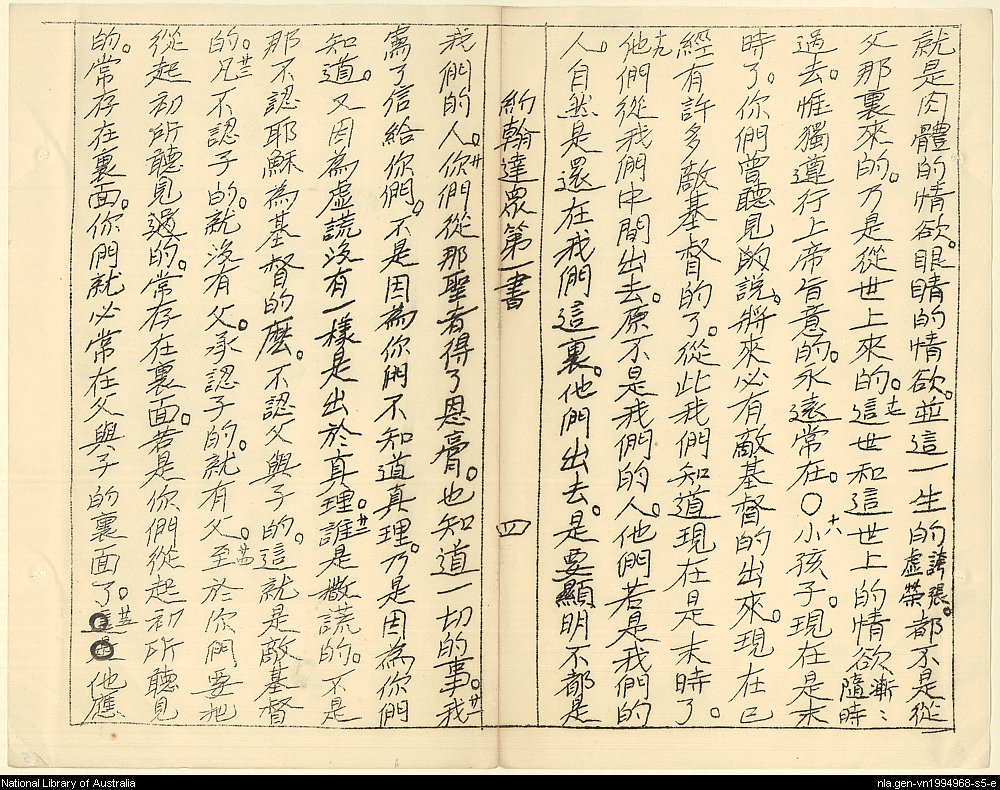 就是肉體的情欲。眼睛的情欲。並這一生的誇張。虛榮都不是從
父那裏來的。乃是從世上來的。十七這世和這世上的情欲漸〻隨時
過去。惟獨遵行上帝旨意的。永遠常在。〇十八小孩子。現在是末
時了。你們曾聽見的說。將來必有敵基督的出來。現在已
經有許多敵基督的了。從此我們知道現在是末時了。
十九他們從我們中間出去。原不是我們的人。他們若是我們的
人。自然是還在我們這裏。他們出去。是要顯明不都是
約翰達眾第一書 四
我們的人。廿你們從那聖者得了恩膏。也知道一切的事。廿一我
寫了信給你們。不是因為你們不知道真理。乃是因為你們
知道。又因為虛謊沒有一樣是出於真理。廿二誰是撒謊的。不是
那不認耶穌為基督的麼。不認父與子的。這就是敵基督
的。廿三凡不認子的。就沒有父。承認子的。就有父。廿四至於你們要把
從起初所聽見過的。常存在裏面。若是你們從起初所聽見
的。常存在裏面。你們就必常在父與子的裏面了。廿五他應
National Library of Australia
nla.gen-vn1994968-s5-e